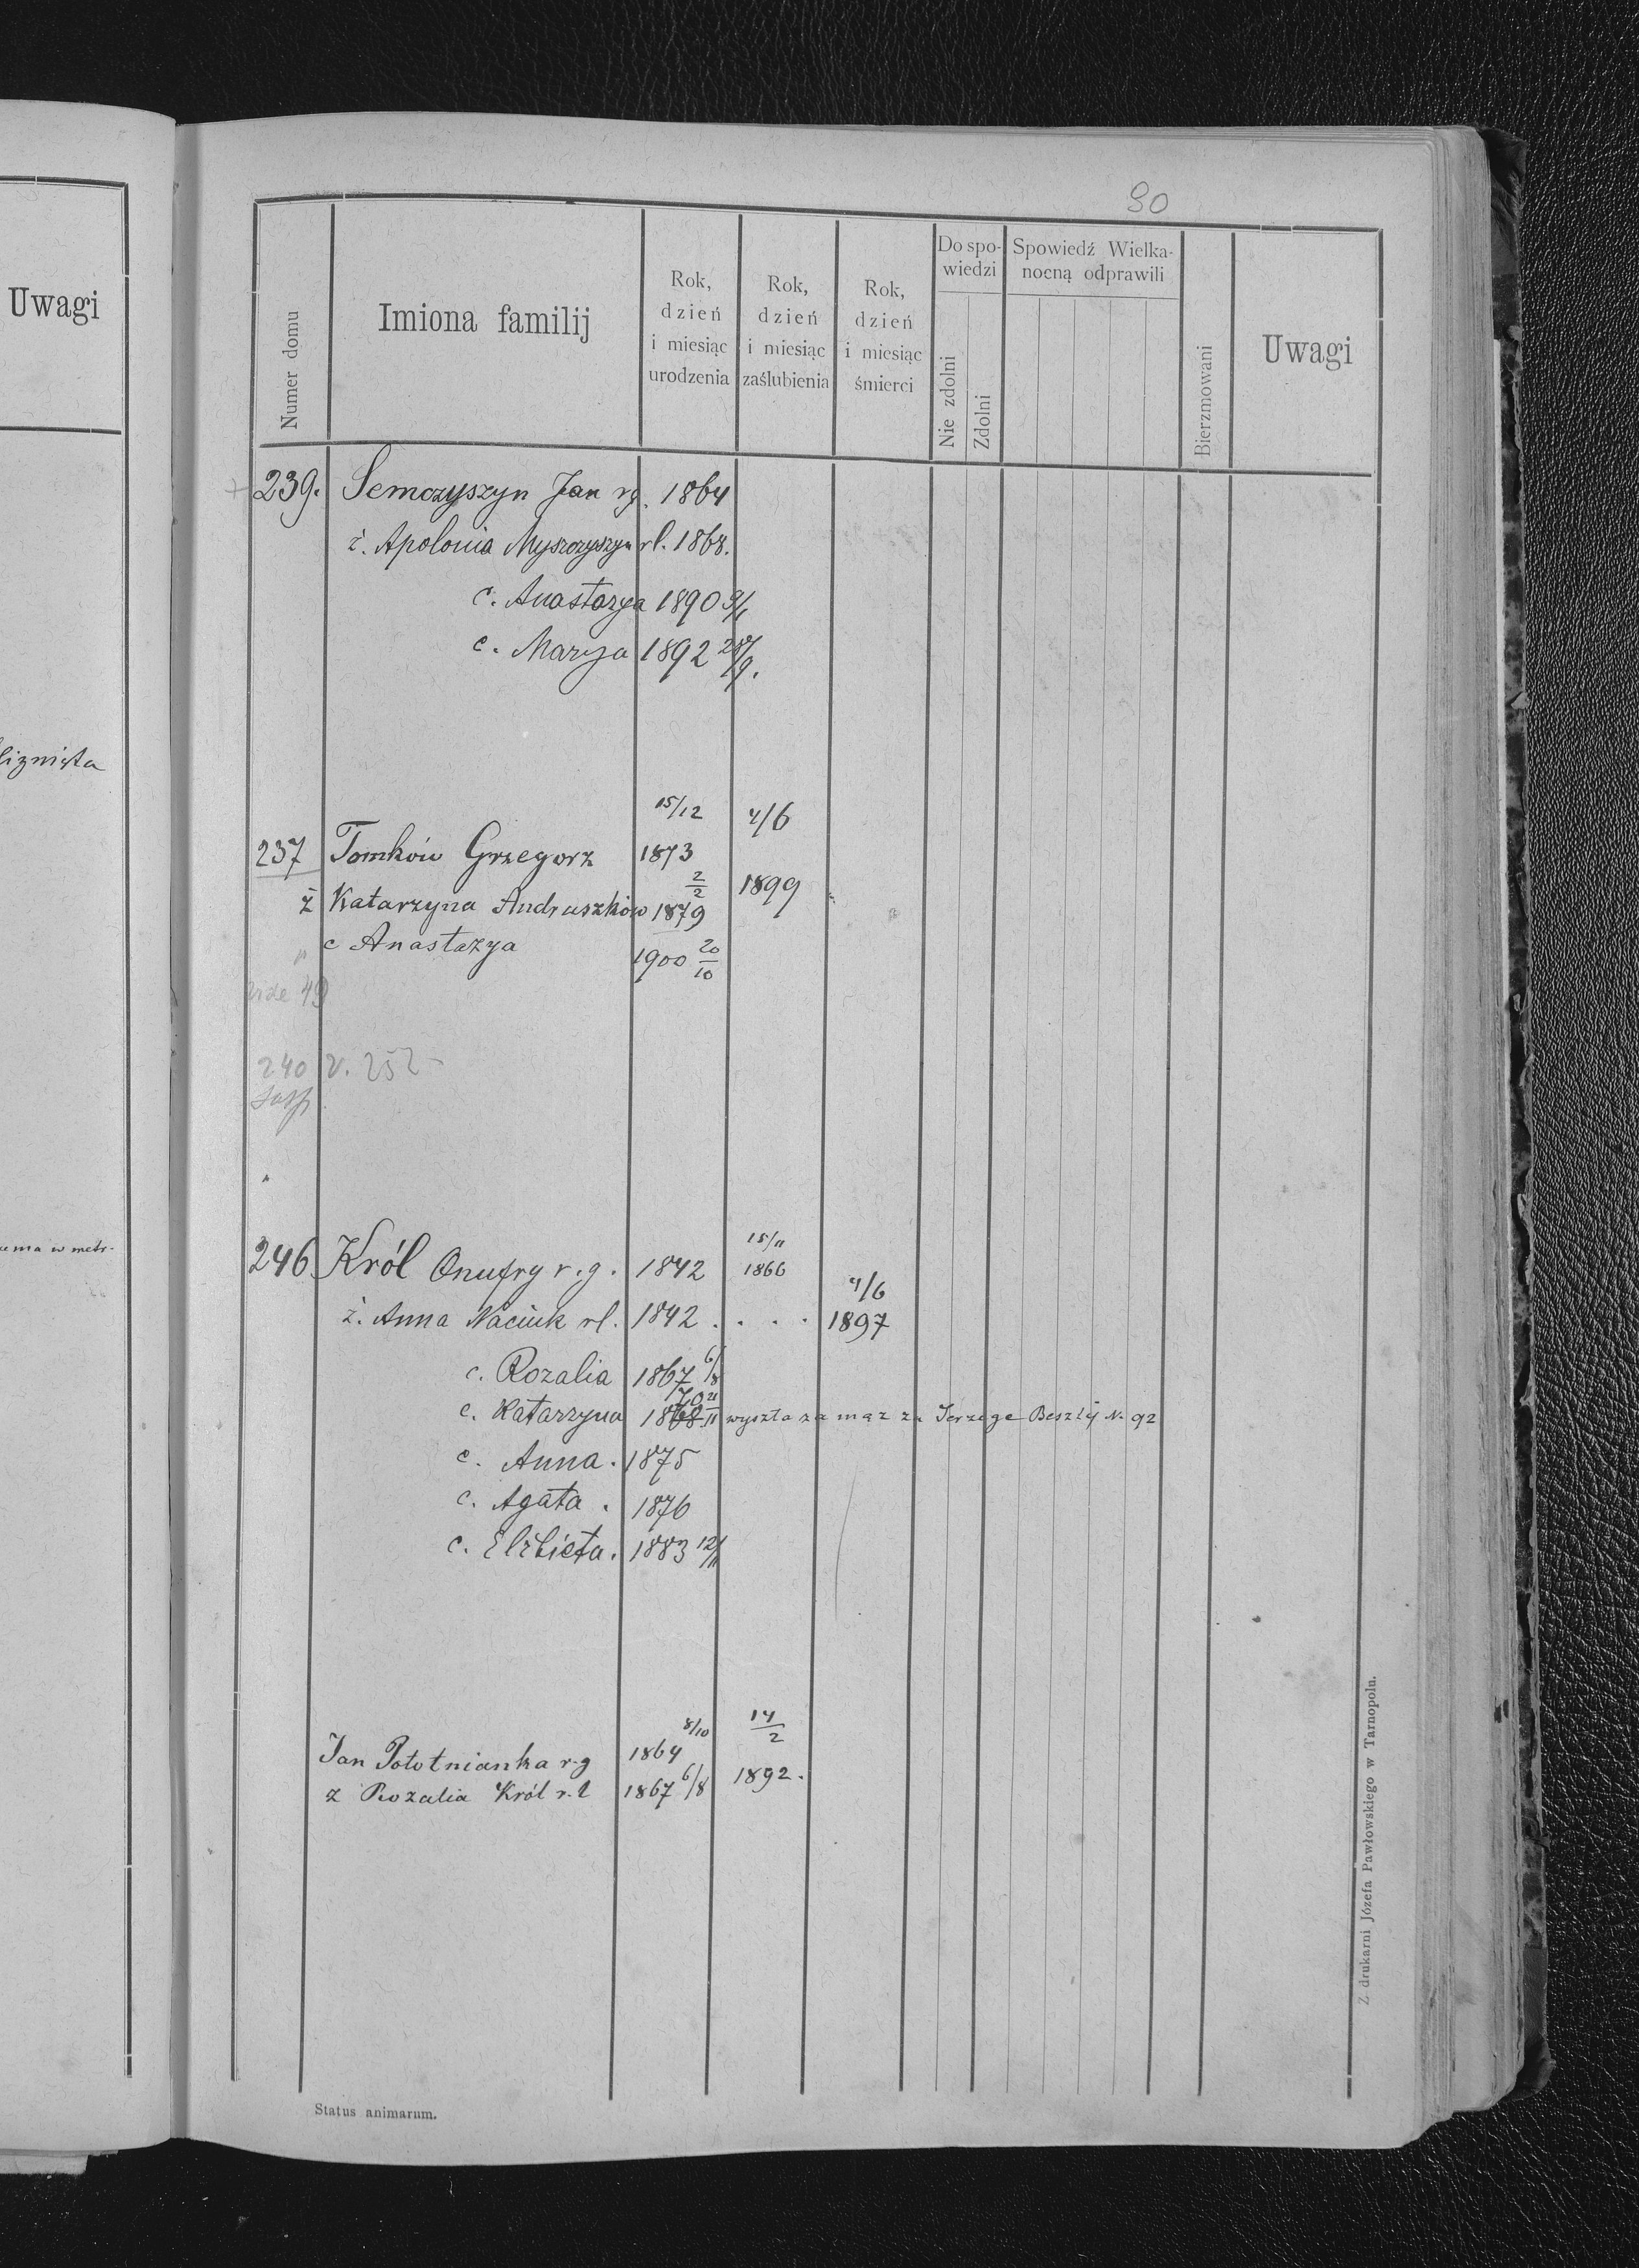 Uwagi
uma w metr.
90
Numer domu
Imiona familij
Rok, dzień i miesiąc urodzenia
Rok, dzień i miesiąc zaślubienia
Rok, dzień i miesiąc śmierci
Do spowiedzi
Nie zdolni
Zdolni
Spowiedź Wielkanocną odprawili
Bierzmowani
Uwagi
239. Semczyszyn Jan rg. 1864
ż. Apolonia Myszczyszyn rl. 1868.
c. Anastazya 1890 9/1
c. Marya 1892 28/9.
15/12 4/6
237 Tomków Grzegorz 1873
ż Katarzyna Andruszków 2/2 1879 1899
" c Anastazya 1900 20/10
vide 49
240 v. 252
246 Król Onufry r.g. 1842 18/11 1866
ż. Anna Naciuk rl. 1842 . . . . 4/6 1897
c. Rozalia 1867 6/8
c. Katarzyna 1868 70 21/11 wyszła za mąż za Jerzego Beszlij N. 92
c. Anna. 1875
c. Agata. 1876
c. Elżbieta. 1883 12/11
Jan Połotnianka r.g 1864 8/10 14/2
ż Rozalia Król r.l 1867 6/8 1892.
Status animarum.
Z drukarni Józefa Pawłowskiego w Tarnopolu.